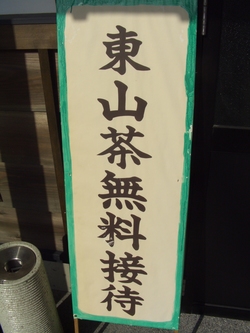 東山茶無料接待